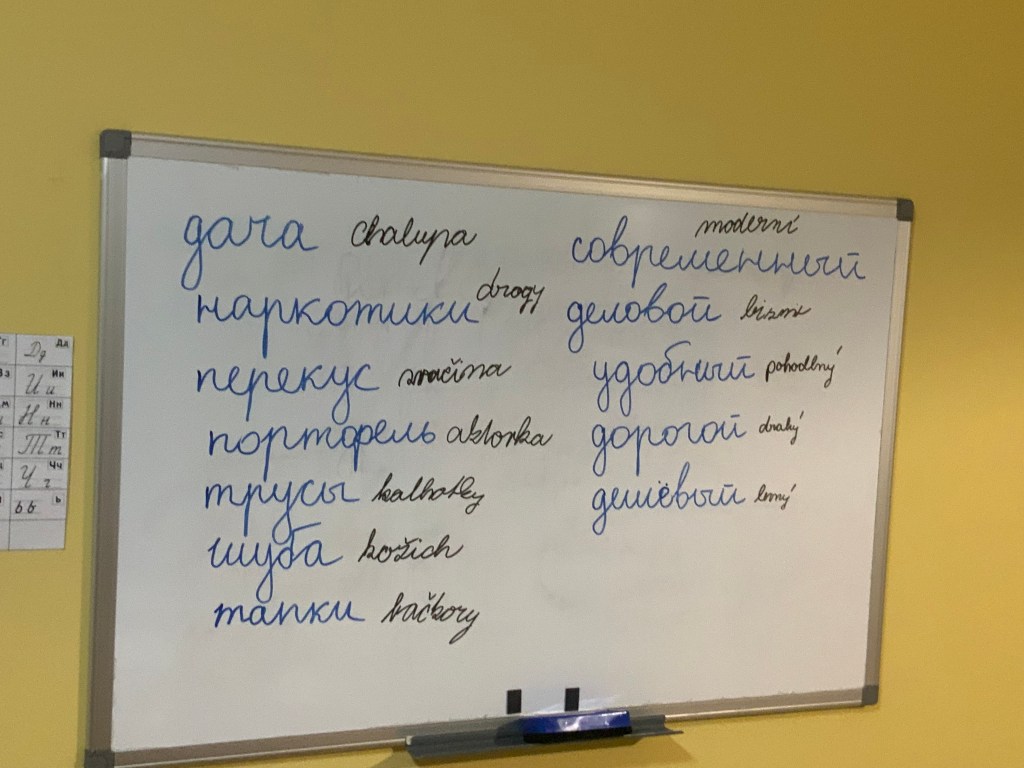 дача chalupa
наркотики drogy
перекус svačina
портфель aktovka
трусы kalhotky
шуба kožich
тапки bačkory
moderní
современный
деловой
удобный pohodlný
дорогой drahý
дешёвый levný
Дд
Дд
Ии
Ии
Нн
Нн
Тт
Тт
Чч
Чч
ь
ьь